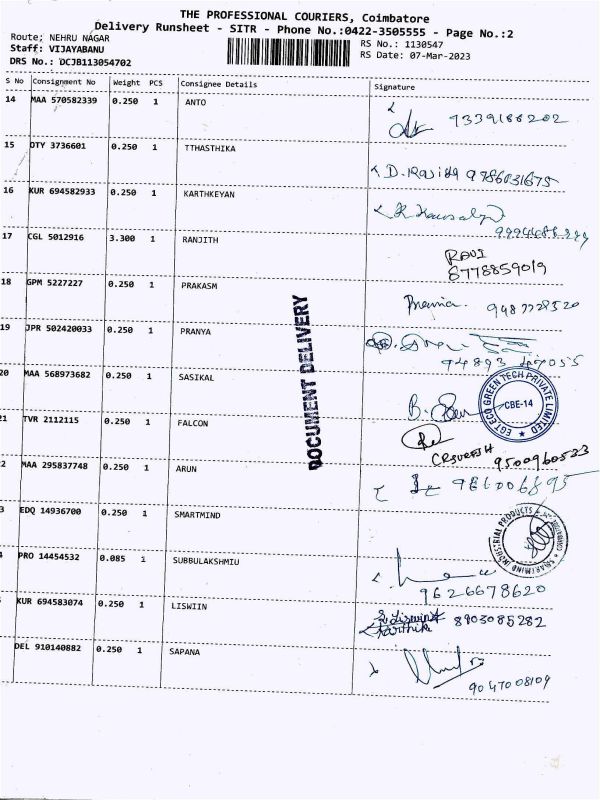 THE PROFESSIONAL COURIERS, Coimbatore
Delivery Runsheet - SITR - Phone No.:0422-3505555 - Page No.:2
Route: NEHRU NAGAR
Staff: VIJAYABANU
DRS No.: DCJB113054702
RS No.: 1130547
RS Date: 07-Mar-2023
S No Consignment No Weight PCS Consignee Details Signature
14 MAA 570582339 0.250 1 ANTO
9339188202
15 OTY 3736601 0.250 1 TTHASTHIKA
9786031675
16 KUR 694582933 0.250 1 KARTHKEYAN
17 CGL 5012916 3.300 1 RANJITH
RAVI
8778859019
18 GPM 5227227 0.250 1 PRAKASM
9487728520
19 JPR 502420033 0.250 1 PRANYA
94893 47055
20 MAA 568973682 0.250 1 SASIKAL
EGT ECO GREEN TECH PRIVATE LIMITED
CBE-14
21 TVR 2112115 0.250 1 FALCON
CRSURESH 9500960523
2 MAA 295837748 0.250 1 ARUN
986006895
3 EDQ 14936700 0.250 1 SMARTMIND
SMARTMIND INDUSTRIAL PRODUCTS
4 PRO 14454532 0.085 1 SUBBULAKSHMIU
9626678620
KUR 694583074 0.250 1 LISWIIN
S. Liswin
Karthika 8903085282
DEL 910140882 0.250 1 SAPANA
9047008109
DOCUMENT DELIVERY